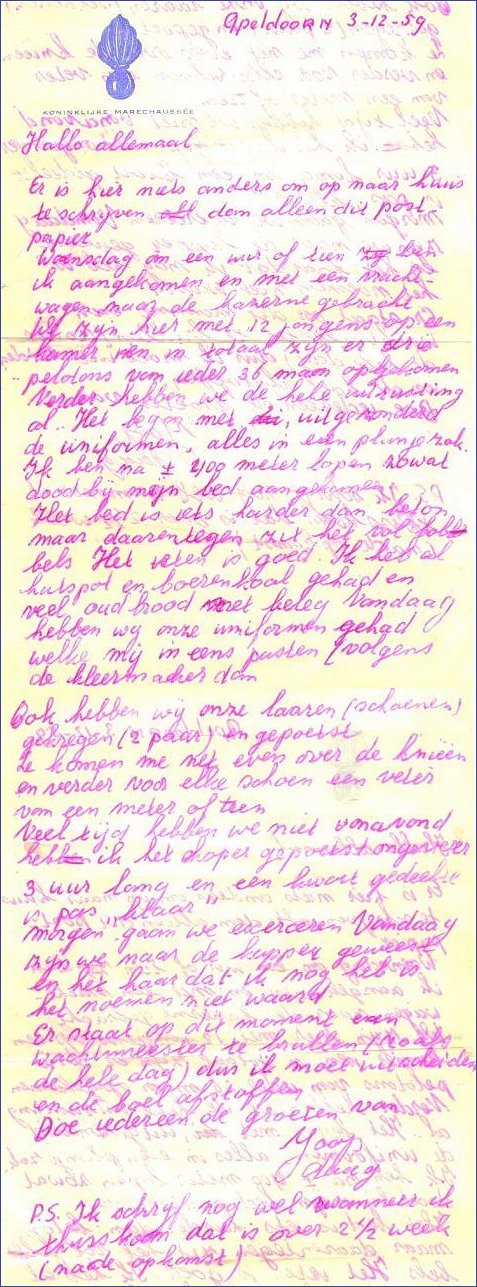 Apeldoorn 3-12-59
KONINKLIJKE MARECHAUSSEE
Hallo allemaal
Er is hier niets anders om op naar huis
te schrijven dan alleen dit post-
papier
Woensdag om een uur of tien ben
ik aangekomen en met een vracht-
wagen naar de kazerne gebracht
We zijn hier met 12 jongens op een
kamer en in totaal zijn er drie
pelotons van ieder 36 man opgekomen
Verder hebben we de hele uitrusting
al. Het begon met uitgezonderd
de uniformen, alles in een plunjezak.
Ik ben na ± 400 meter lopen zowat
dood bij mijn bed aangekomen
Het bed is iets harder dan beton
maar daarentegen zit het vol bob-
bels Het eten is goed. Ik heb al
hutspot en boerenkool gehad en
veel oud brood met beleg Vandaag
hebben wij onze uniformen gehad
welke mij in eens pasten (volgens
de kleermaker dan
Ook hebben wij onze laarzen (schoenen)
gekregen (2 paar) en gepoetst
Ze komen me net even over de knieën
en verder voor elke schoen een veter
van een meter of tien
Veel tijd hebben we niet vanavond
heb ik het koper gepoetst ongeveer
3 uur lang en een kwart gedeelte
is pas klaar
morgen gaan we exerceren Vandaag
zijn we naar de kapper geweest
en het haar dat ik nog heb is
het noemen niet waard
Er staat op dit moment een
wachtmeester te brullen (zoals
de hele dag) dus ik moet uitscheiden
en de boel afstoffen
Doe iedereen de groeten van
Joop
daag
P.S. Ik schrijf nog wel wanneer ik
thuiskom dat is over 2 1/2 week
(na de opkomst)